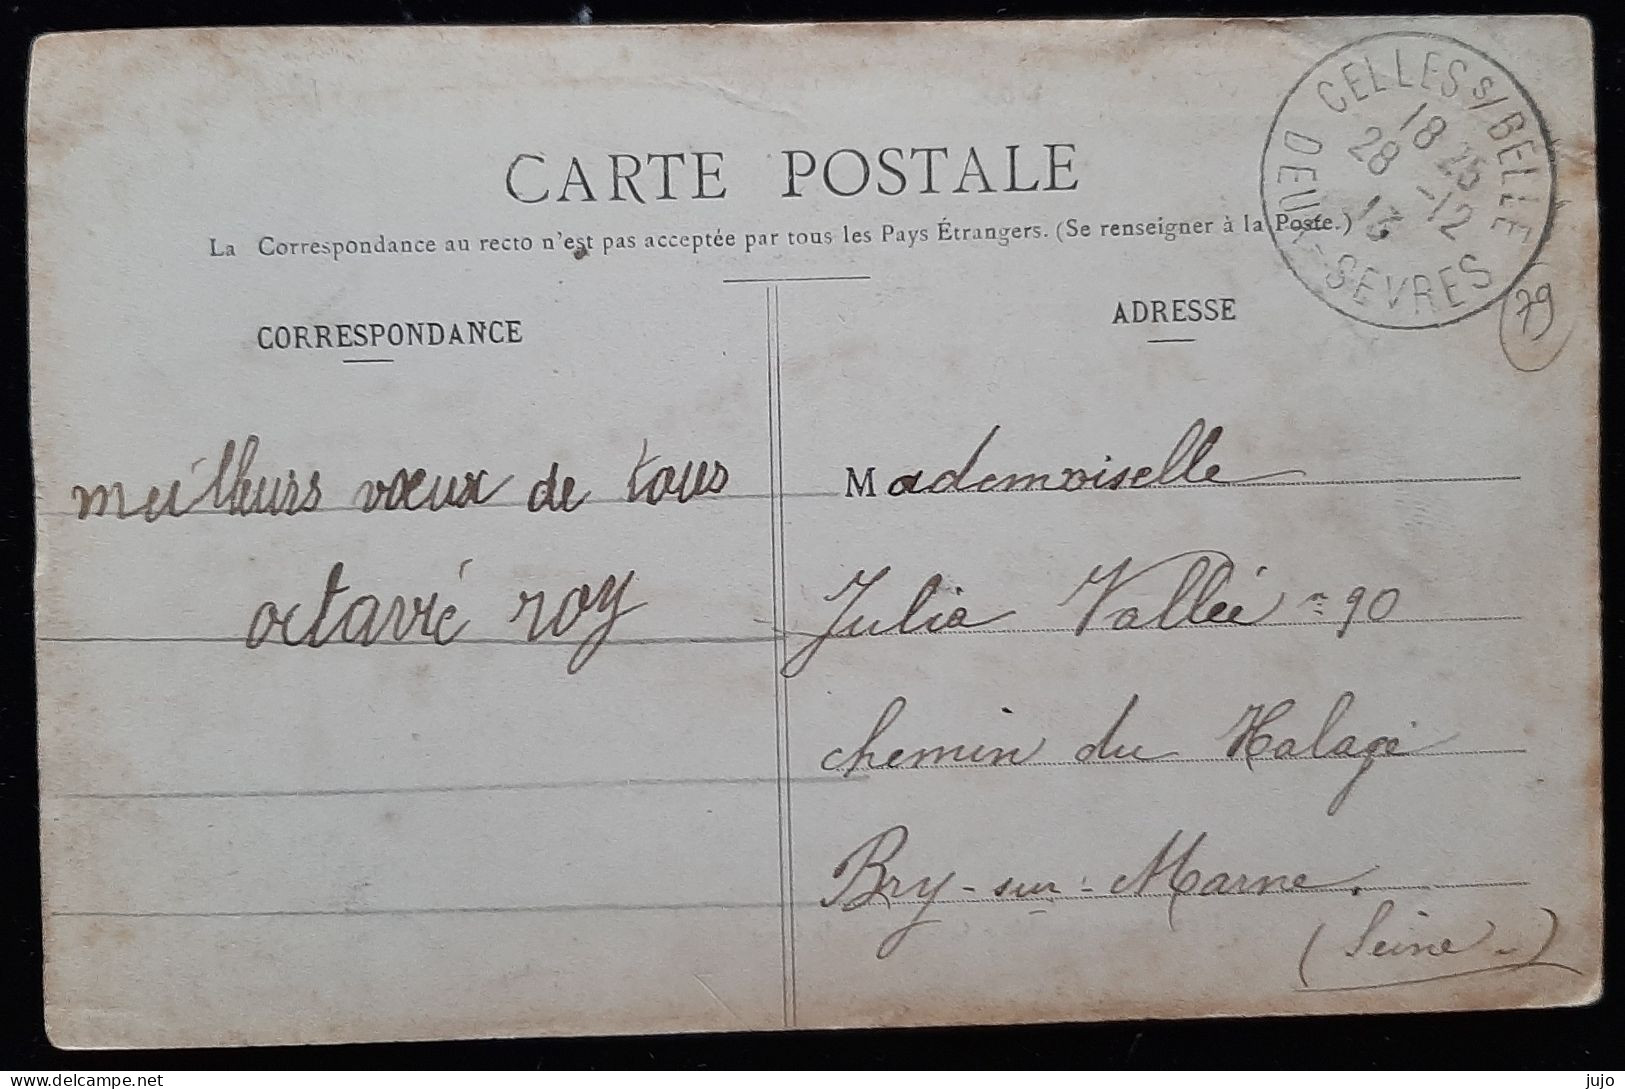 CARTE POSTALE
La Correspondance au recto n'est pas acceptée par tous les Pays Étrangers. (Se renseigner à la Poste.)
CELLES s/BELLE
18 25
28 -12
13
DEUX-SEVRES
79
CORRESPONDANCE
meilleurs vœux de tous
octavie roy
ADRESSE
Mademoiselle
Julia Vallée 90
chemin du Halage
Bry-sur-Marne.
(Seine-)
delcampe.net
jujo